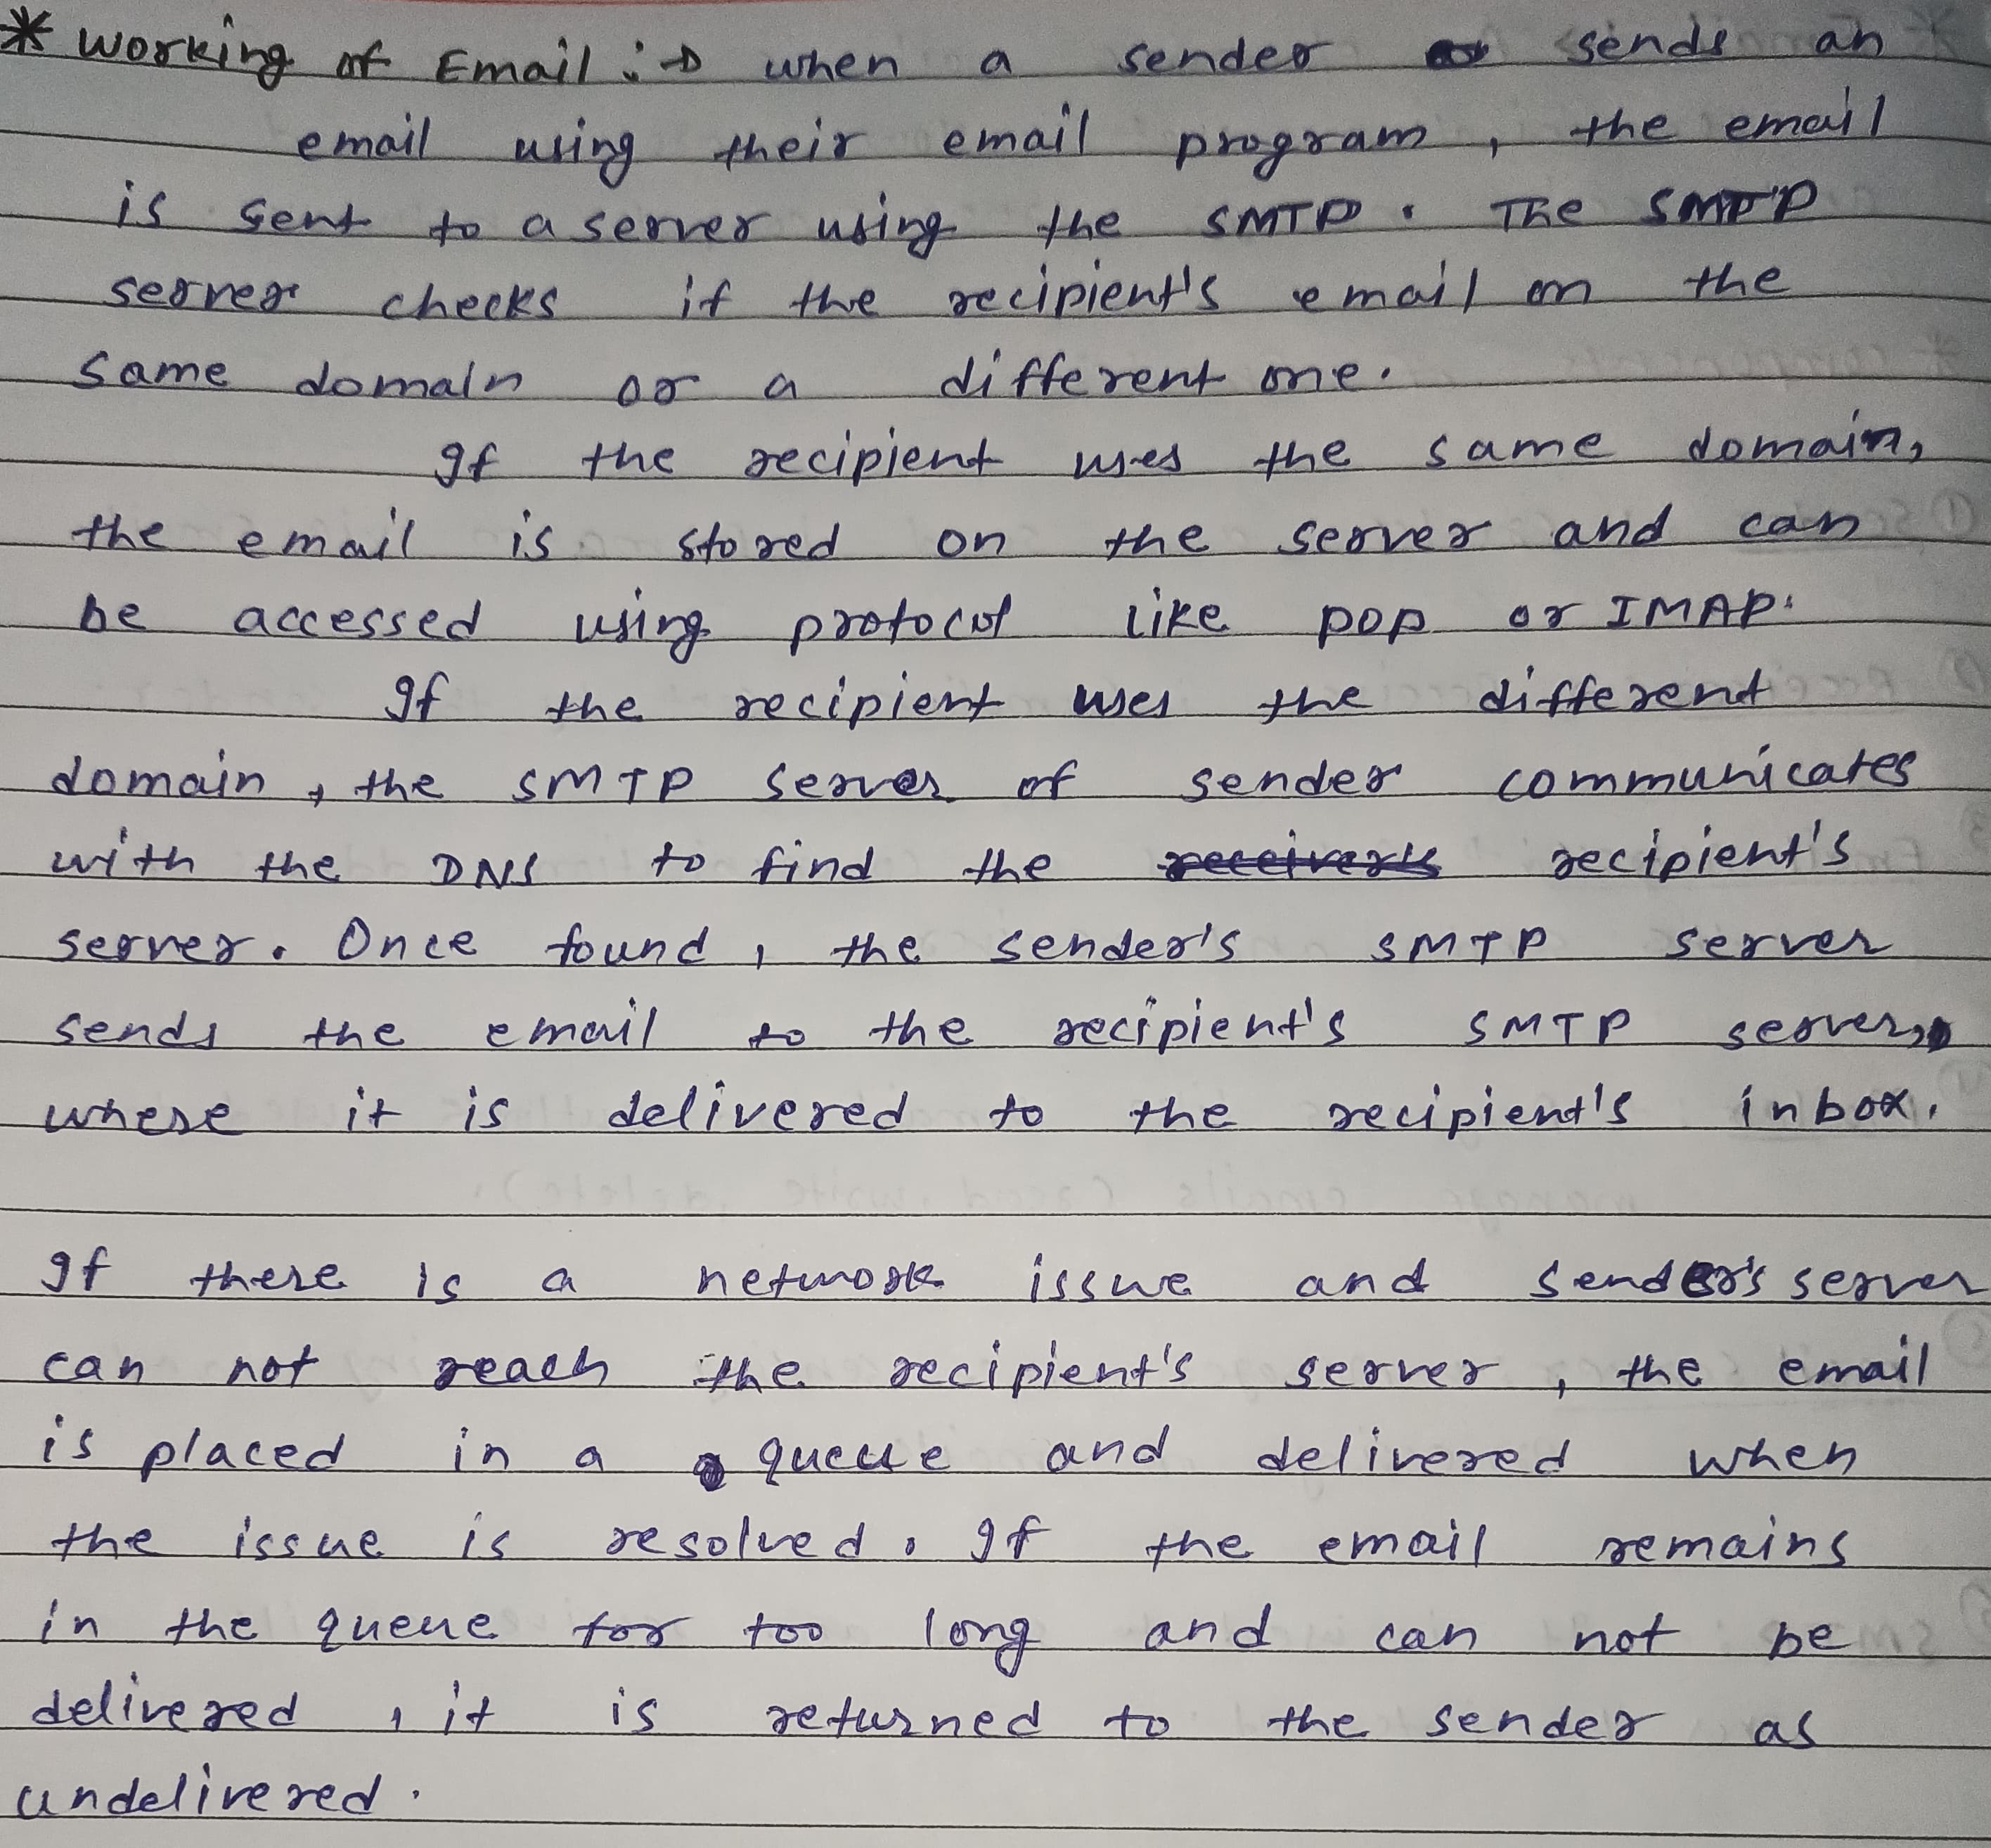 * Working of Email :→ when a sender sends an
email using their email program, the email
is sent to a server using the SMTP. The SMTP
server checks if the recipient's email on the
same domain or a different one.
If the recipient uses the same domain,
the email is stored on the server and can
be accessed using protocol like POP or IMAP.
If the recipient uses the different
domain, the SMTP server of sender communicates
with the DNS to find the receiver's recipient's
server. Once found, the sender's SMTP server
sends the email to the recipient's SMTP server,
where it is delivered to the recipient's inbox.
If there is a network issue and sender's server
can not reach the recipient's server, the email
is placed in a queue and delivered when
the issue is resolved. If the email remains
in the queue for too long and can not be
delivered, it is returned to the sender as
undelivered.